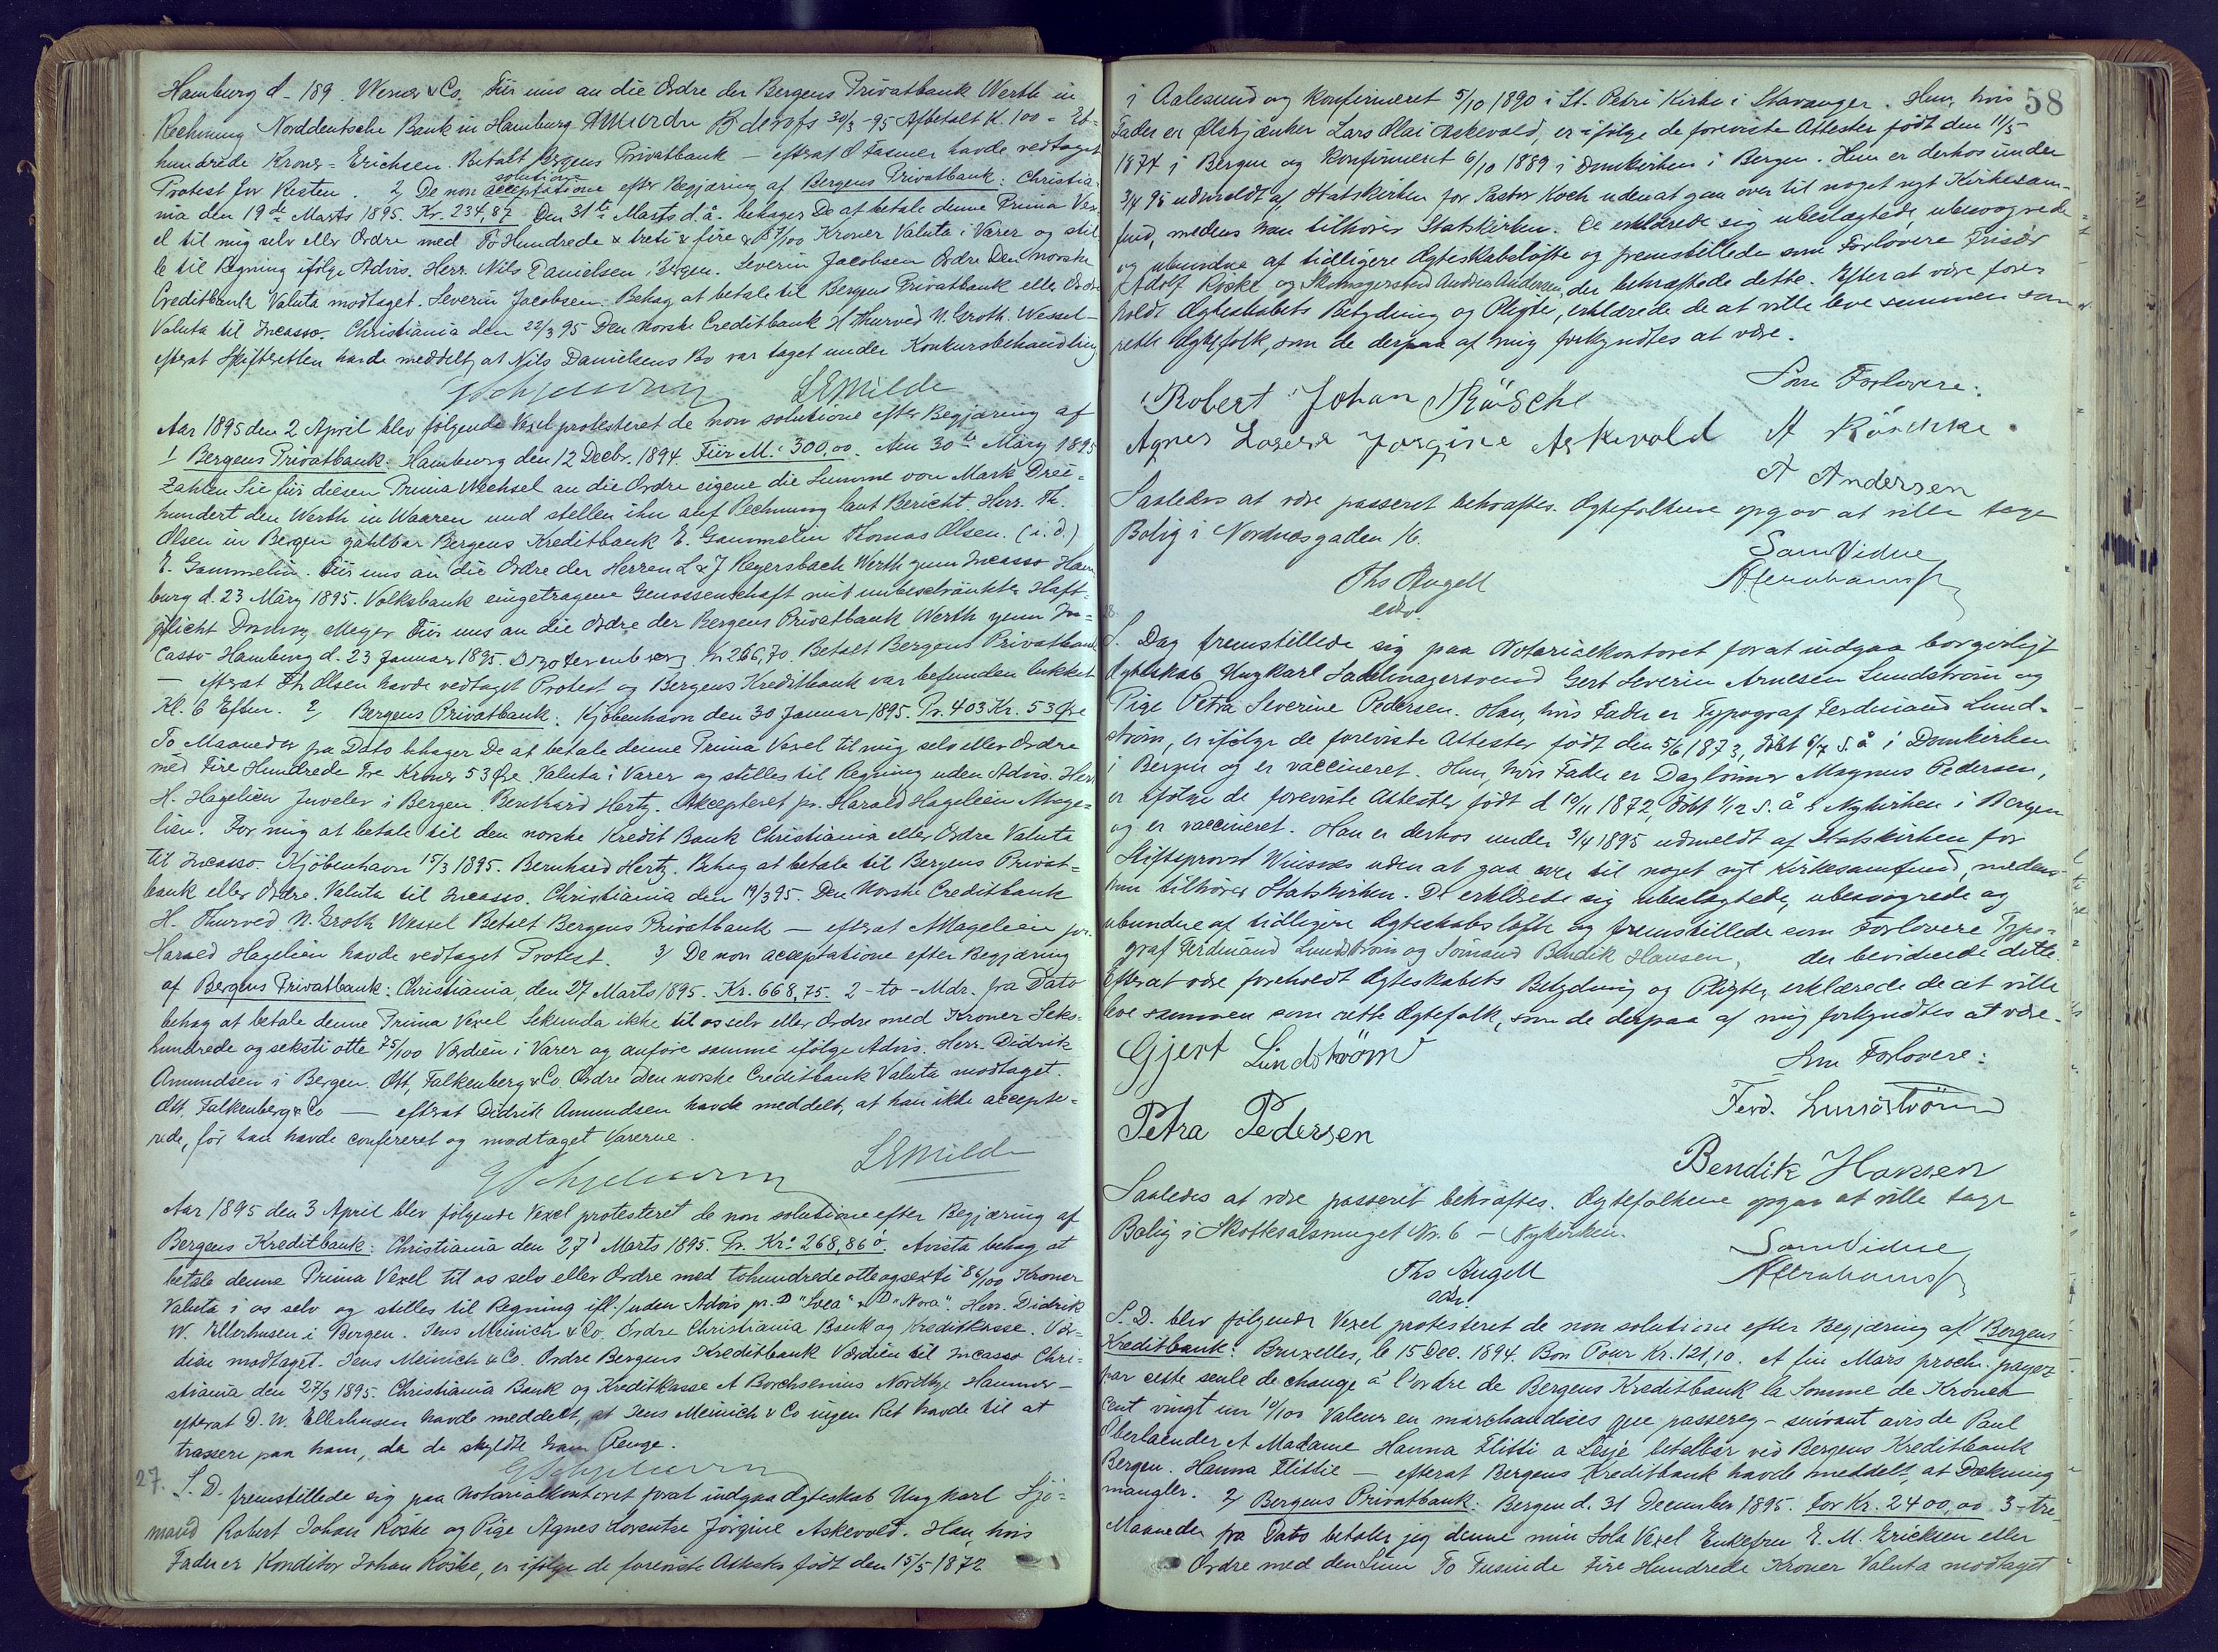 Hamburg d - 189 . Werner & Co. Für uns an die Ordre der Bergens Privatbank Werth in
Rechnung Norddeutsche Bank in Hamburg 30/3 - 95 Afbetalt K. 100 = Et=
hundrede Kroner = Erichsen. Betalt Bergens Privatbank — efterat havde vedtaget
Protest for Resten. 2, De non acceptatione solutione efter Begjæring af Bergens Privatbank: Christia-
nia den 19de Marts 1895. Kr. 234,87 Den 31te Marts d.å. behager De at betale denne Prima Vex-
el til mig selv eller Ordre med To Hundrede & treti & fire & 87/100 Kroner Valuta i Varer og stil
le til Regning ifølge Advis. Herr. Nils Danielsen i Bergen. Severin Jacobsen Ordre Den norske
Creditbank Valuta modtaget. Severin Jacobsen. Behag at betale til Bergens Privatbank eller Ordre
Valuta til Incasso. Christiania den 22/3 95 Den norske Creditbank H Thurved N. Groth. Wessel —
efterat Skifteretten havde meddelt, at Nils Danielsens Bo var taget under Konkursbehandling
LEMilde
Aar 1895 den 2 April blev følgende Vexel protesteret de non solutione efter Begjæring af
1 Bergens Privatbank: Hamburg den 12 Decbr. 1894. Für M. 300,00. Am 30te März 1895
Zahlen Sie für diesen Prima Wechsel an die Ordre eigene die Summe von Mark Drei=
hundert den Werth in Waaren und stellen ihn auf Rechnung laut Bericht. Herr. Th.
Olsen in Bergen zahlbar Bergens Kreditbank E. Gammelin Thomas Olsen. (i. d.)
E. Gammelin. Für uns an die Ordre der Herren L & J Regersbach Werth zum Incasso Ham-
burg d. 23 März 1895. Volksbank eingetragene Genossenschaft mit unbeschränkter Haft-
pflicht Meyer Für uns an die Ordre der Bergens Privatbank Werth zum In=
casso Hamburg d. 23 Januar 1895. Kr 266,70. Betalt Bergens Privatbank
— efterat Th Olsen havde vedtaget Protest og Bergens Kreditbank var befunden lukket
Kl. 6 Efterm. 2, Bergens Privatbank: Kjöbenhavn den 30 Januar 1895. Pr. 403 Kr. 53 Øre
To Maaneder fra Dato behager De at betale denne Prima Vexel til mig selv eller Ordre
med Fire Hundrede Tre Kroner 53 Øre. Valuta i Varer og stilles til Regning uden Advis. Herr
H. Hagelien Juveler i Bergen. Bernhard Hertz. Accepteret pr. Harald Hagelien Mage-
lien. For mig at betale til den norske Kredit Bank Christiania eller Ordre Valuta
til Incasso. Kjöbenhavn 15/3 1895. Bernhard Hertz. Behag at betale til Bergens Privat=
bank eller Ordre. Valuta til Incasso. Christiania den 19/3 95. Den Norske Creditbank
H. Thurved N. Groth Wessel Betalt Bergens Privatbank — efterat Magelien pr.
Harald Hagelien havde vedtaget Protest. 3/ De non acceptatione efter Begjæring
af Bergens Privatbank: Christiania, den 27 Marts 1895. Kr. 668,75. 2 - to - Mdr. fra Dato
behag at betale denne Prima Vexel Sekunda ikke til os selv eller Ordre med Kroner Seks-
hundrede og seksti otte 75/100 Værdien i Varer og anföre samme ifölge Advis. Herr. Didrik
Amundsen i Bergen. Ott, Falkenberg & Co. Ordre Den norske Creditbank Valuta modtaget.
Ott. Falkenberg & Co — efterat Didrik Amundsen havde meddelt, at han ikke accepte=
rede, før han havde confereret og modtaget Varerne.
LEMilde
Aar 1895 den 3 April blev følgende Vexel protesteret de non solutione efter Begjæring af
Bergens Kreditbank: Christiania den 27d Marts 1895. Pr. Kr: 268,86 ö. Avista behag at
betale denne Prima Vexel til os selv eller Ordre med tohundrede otteogsexti 86/100 Kroner
Valuta i os selv og stilles til Regning ifl./uden Advis pr. D "Svea" & D "Nora". Herr. Didrik
W. Ellerhusen i Bergen. Jens Meinich & Co. Ordre Christiania Bank og Kreditkasse. Vær-
dien modtaget. Jens Meinich & Co. Ordre Bergens Kreditbank Værdien til Incasso Chri-
stiania den 27/3 1895. Christiania Bank og Kreditkasse A Borchsenius Nordbye Hammer —
efterat D. W. Ellerhusen havde meddelt, at Jens Meinich & Co ingen Ret havde til at
trassere paa ham, da de skyldte ham Penge.
27. S. D. fremstillede sig paa Notarialkontoret forat indgaa Ægteskab Ungkarl Sjö-
mand Robert Johan Röske og Pige Agnes Lorentse Jörgine Askevold. Han, hvis
Fader er Konditor Johan Röske, er ifölge de foreviste Attester født den 15/5 1872
58
i Aalesund og konfirmeret 5/10 1890 i St. Petri Kirke i Stavanger. Hun, hvis
Fader er Ølskjænker Lars Olai Askevold, er ifölge de foreviste Attester født den 11/5
1874 i Bergen og konfirmeret 6/10 1889 i Domkirken i Bergen. Hun er derhos under
3/4 95 udmeldt af Statskirken for Pastor Koch uden at gaa over til noget nyt Kirkesam-
fund, medens han tilhører Statskirken. De erklærede sig ubeslægtede, ubesvogrede
og ubundne af tidligere Ægteskabslöfte og fremstillede som Forlovere Frisör
Adolf Röske og Skomagersvend Andreas Andersen, der bekræftede dette. Efter at være fore-
holdt Ægteskabets Betydning og Pligter, erklærede de at ville leve sammen som
rette Ægtefolk, som de derpaa af mig forkyndtes at være.
Som Forlovere:
Robert Johan Räsche
Agnes Lorense Jorgine Askevold A Röschke
A Andersen
Saaledes at være passeret bekræftes. Ægtefolkene opgav at ville tage
Bolig i Nordnæsgaden 16.
Som Vidne
Ths Angell
28.
S. Dag fremstillede sig paa Notarialkontoret forat indgaa borgerligt
Ægteskab Ungkarl Sadelmagersvend Gert Severin Arnesen Lundström og
Pige Petra Severine Pedersen. Han, hvis Fader er Typograf Ferdinand Lund-
ström, er ifölge de foreviste Attester født den 5/6 1873, döbt 6/7 s. å i Domkirken
i Bergen og er vaccineret. Hun, hvis Fader er Daglönner Magnus Pedersen,
er ifölge de foreviste Attester født d 10/11 1872, döbt 1/12 s. å i Nykirken i Bergen
og er vaccineret. Han er derhos under 3/4 1895 udmeldt af Statskirken for
Stiftsprovst Winsnes uden at gaa over til noget nyt Kirkesamfund, medens
hun tilhörer Statskirken. De erklærede sig ubeslægtede, ubesvogrede og
ubundne af tidligere Ægteskabslöfte og fremstillede som Forlovere Typo-
graf Ferdinand Lundström og Sömand Bendik Hansen, der bevidnede dette.
Efterat være foreholdt Ægteskabets Betydning og Pligter, erklærede de at ville
leve sammen som rette Ægtefolk, som de derpaa af mig forkyndtes at være.
Gjert Lundström
Som Forlovere:
Ferd. Lundström
Petra Pedersen
Bendik Hansen
Saaledes at være passeret bekræftes. Ægtefolkene opgav at ville tage
Bolig i Skottesalsmuget Nr. 6 — Nykirken.
Som Vidne
Ths Angell
S. D. blev følgende Vexel protesteret de non solutione efter Begjæring af Bergens
Kreditbank: Bruxelles, le 15 Dec. 1894. Bon Pour Kr. 121,10. A fin Mars proch. payez
par cette seule de change à l'ordre de Bergens Kreditbank la Somme de Kronen
cent vingt un 10/100 Valeur en marchandises que passerez — suivant avis de Paul
Oberlaender A Madame Hanna Flitti a Lesje betalbar ved Bergens Kreditbank
Bergen. Hanna Flittie — efterat Bergens Kreditbank havde meddelt, at Dækning
mangler. 2, Bergens Privatbank: Bergen d. 31 December 1895. For Kr. 2400,00 3 - tre -
Maaneder fra Dato betaler jeg denne min Sola Vexel Enkefru E. M. Ericksen eller
Ordre med den Sum To Tusinde Fire Hundrede Kroner Valuta modtaget